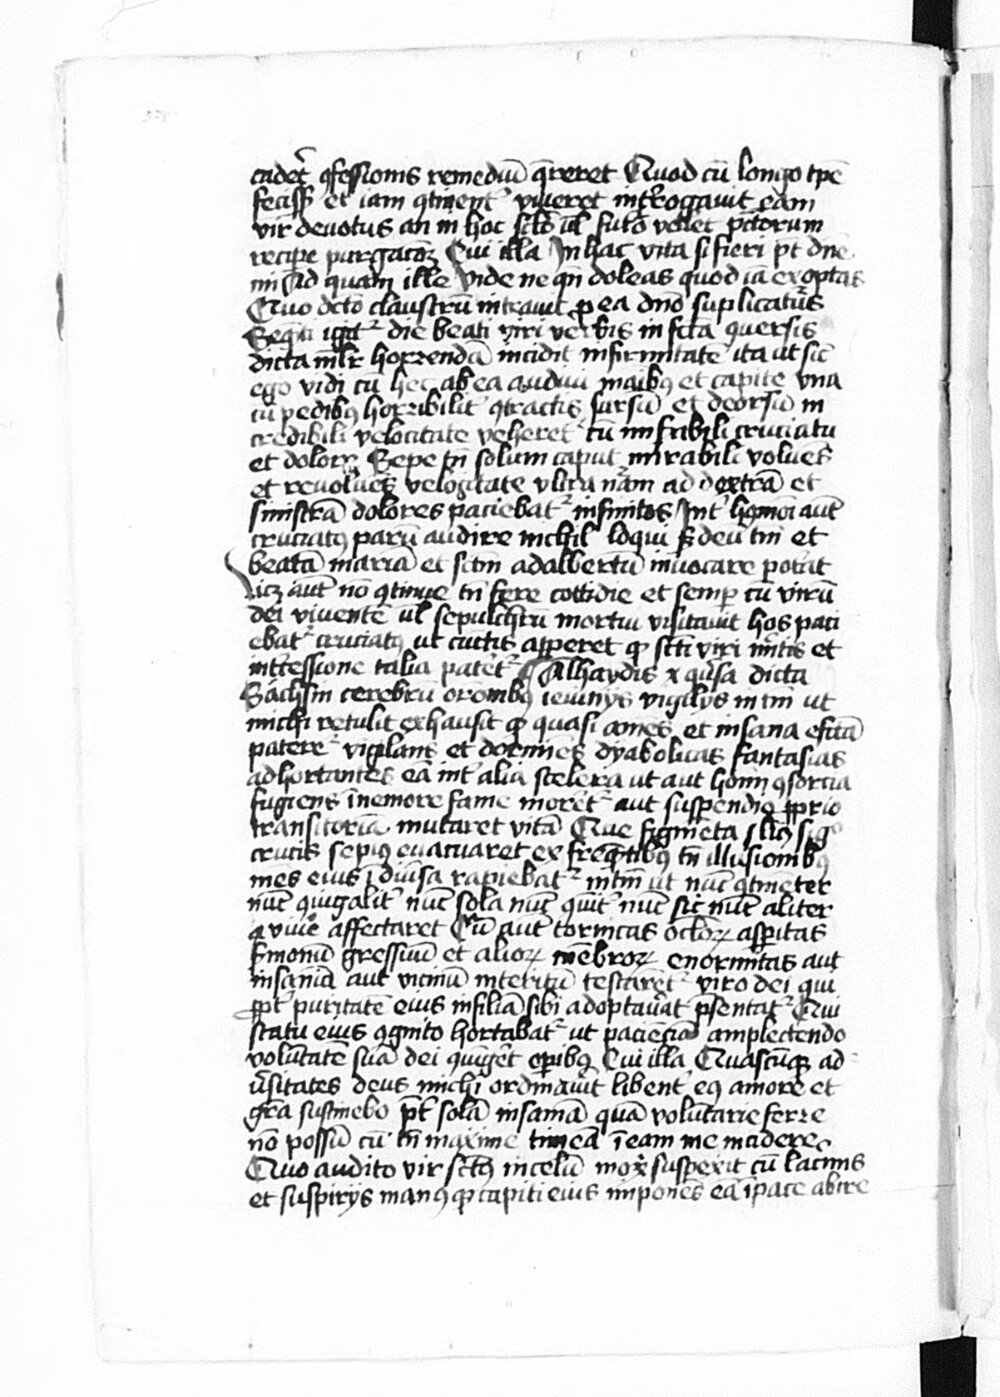 cadet᷑ ꝯfessionis remediū q̄reret Quod cū longo tꝑe
feciss; et iam ꝯtinent᷑ viveret int᷑rogavit eam
vir devotus an in hoc sc̄lo ūl fut᷑o vellet pctōrum
recipe purgacōꝫ Cui illa In hac vita si fieri pt̄ dn̄e
mi Ad quam ille vide ne qn̄ doleas quod iā exoptas
Quo dct̄o claustrū intravit ꝑ ea dn̄o suplicatur᷑s
Seq̄nti igit᷑ die beati viri verbis in fct̄a ꝯversis
dicta ml̄r horrendā incidit infirmitatē ita ut sic̄
ego vidi cū hec ab ea audivi manibꝰ et capite vna
cū pedibꝰ horribilit᷑ ꝯtractis sursū et deorsū in
credibili velocitate veheret᷑ cū inefabili cruciatu
et dolore Sepe tn̄ solum caput mirabili volue͞s
et revolue͞s velocitate vltra nām ad dextrā et
sinistrā dolores paciebat᷑ infinitos Int᷑ hꝰmōi aut᷑
cruciatꝰ parū audire nichil loqui sꝫ deū tm̄ et
beatā mariā et sct̄m adalbertū invocare poterat
Licꝫ aut᷑ nō ꝯtinue tn̄ fere cottidie et semꝑ cū virū
dei viventē ūl sepulchrū mortui visitavit hos paci
ebat᷑ cruciatꝰ ut cūctis apperet qꝫ sct̄i viri mr̄itis et
int᷑cessione talia patet᷑ Alhaydis x q̄sa dicta
Sachsin cerebrū orōnibꝰ ieiunijs vigilijs in tm̄ ut
michi retulit exhausit qꝫ quasi amēs et insana effcā
patere᷑ vigilans et dormiēs dyabolicas fantasias
adhortantes eā int᷑ alia scelera ut aut hoīm ꝯsorcia
fugiens ī nemore fame moret᷑ aut suspendio ꝓprio
transitoriā mutaret vitā Que figmēta lic; sigo
crucis sepiꝰ evacuaret ex freq̄ntibꝰ tn̄ illusionibꝰ
mēs eius ī diu᷑sa rapiebat᷑ intm̄ ut nūc ꝯtinēter
nūc ꝯiugalit᷑ nūc sola nūc ꝯuit᷑ nūc sic nūc aliter
ꝯviue᷑ affectaret Cū aut᷑ tornitas oclōꝝ asꝑitas
s᷑monū gressuū et alioꝝ mēbroꝝ enormitas aut
insaniā aut vicinū interitū testaret᷑ viro dei qui
ꝓpt᷑ puritatē eius in filiā sibi adoptaverat p̄sentat᷑ Qui
statu eius ꝯgnito hortabat᷑ ut pacienciā amplectendo
volūtatē suā dei ꝯiunget oꝑibꝰ Cui illa Quascūqꝫ ad
v᷑sitates deus michi ordinav᷑it libent᷑ eiꝰ amore et
gr̄a sustinebo p̄t᷑ solā insaniā quā volūtarie ferre
nō possū cū tn̄ maxime timeā ī eam me incidere
Quo audito vir sct̄ꝰ in celū mox suspexit cū lacrimis
et suspirijs manꝰqꝫ capiti eius imponēs eā ī pace abire